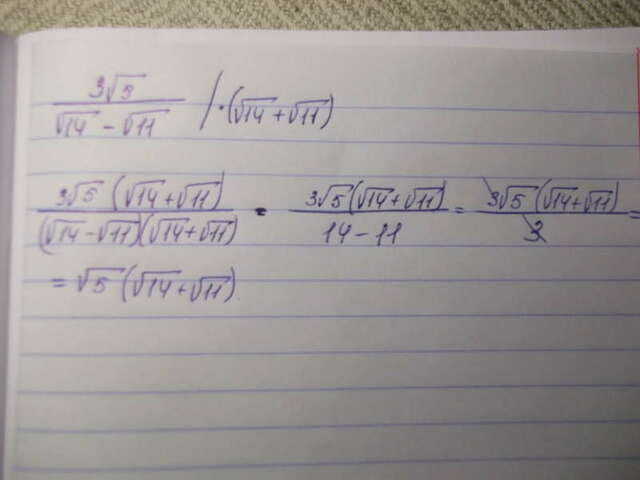 3√5 / (√14 - √11) / · (√14 + √11)
3√5 (√14 + √11) / (√14 - √11)(√14 + √11) = 3√5(√14 + √11) / 14 - 11 = 3√5 (√14 + √11) / 3 =
= √5 (√14 + √11)